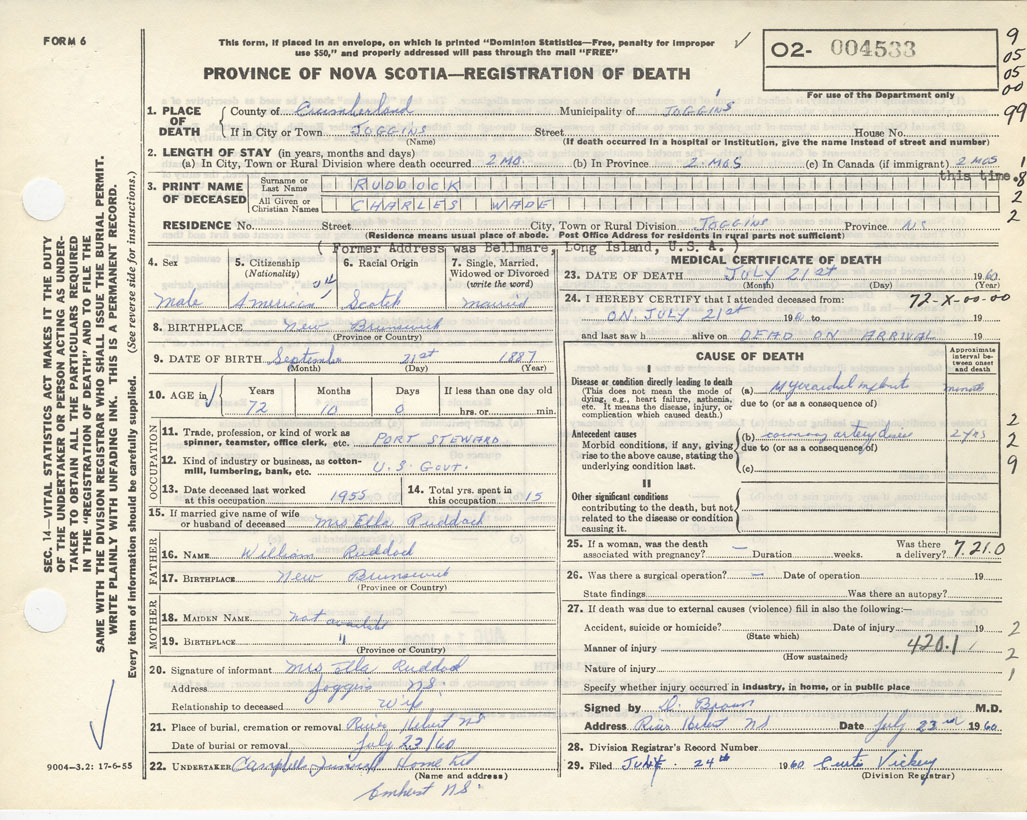 FORM 6
This form, if placed in an envelope, on which is printed "Dominion Statistics—Free, penalty for improper
use $50," and properly addressed will pass through the mail "FREE"
O2- 004533
For use of the Department only
9
05
05
00
99
PROVINCE OF NOVA SCOTIA—REGISTRATION OF DEATH
1. PLACE OF DEATH County of Cumberland Municipality of JOGGINS
If in City or Town JOGGINS Street House No.
(Name) (If death occurred in a hospital or institution, give the name instead of street and number)
2. LENGTH OF STAY (in years, months and days)
(a) In City, Town or Rural Division where death occurred 2 MO. (b) In Province 2 MOS (c) In Canada (if immigrant) 2 MOS
this time.
1
8
2
2
3. PRINT NAME OF DECEASED Surname or Last Name RUDDOCK
All Given or Christian Names CHARLES WADE
RESIDENCE No. Street City, Town or Rural Division JOGGINS Province NS
(Residence means usual place of abode. Post Office Address for residents in rural parts not sufficient)
( Former Address was Bellmare, Long Island, U.S.A. )
4. Sex 5. Citizenship (Nationality) 6. Racial Origin 7. Single, Married, Widowed or Divorced (write the word)
Male American Scotch Married
8. BIRTHPLACE New Brunswick
(Province or Country)
9. DATE OF BIRTH September 21st 1887
(Month) (Day) (Year)
10. AGE in Years Months Days If less than one day old
72 10 0 hrs. or min.
OCCUPATION
11. Trade, profession, or kind of work as spinner, teamster, office clerk, etc. PORT STEWARD
12. Kind of industry or business, as cotton-mill, lumbering, bank, etc. U.S. GOVT.
13. Date deceased last worked at this occupation 1955 14. Total yrs. spent in this occupation 15
15. If married give name of wife or husband of deceased Mrs Ella Ruddock
FATHER
16. NAME William Ruddock
17. BIRTHPLACE New Brunswick
(Province or Country)
MOTHER
18. MAIDEN NAME not available
19. BIRTHPLACE "
(Province or Country)
20. Signature of informant Mrs Ella Ruddock
Address Joggins NS.
Relationship to deceased Wife
21. Place of burial, cremation or removal River Hebert NS
Date of burial or removal July 23/60
22. UNDERTAKER Campbells Funeral Home Ltd
(Name and address)
Amherst NS
MEDICAL CERTIFICATE OF DEATH
23. DATE OF DEATH JULY 21st 1960
(Month) (Day) (Year)
24. I HEREBY CERTIFY that I attended deceased from: 72-X-00-00
ON JULY 21st 19 to 19
and last saw h alive on DEAD ON ARRIVAL 19
CAUSE OF DEATH
Approximate interval between onset and death
I
Disease or condition directly leading to death
(This does not mean the mode of dying, e.g., heart failure, asthenia, etc. It means the disease, injury, or complication which caused death.)
(a) Myocardial infarct minutes
due to (or as a consequence of)
Antecedent causes
Morbid conditions, if any, giving rise to the above cause, stating the underlying condition last.
(b) coronary artery disease 2 yrs
due to (or as a consequence of)
(c)
2
2
9
II
Other significant conditions
contributing to the death, but not related to the disease or condition causing it.
25. If a woman, was the death associated with pregnancy? — Duration weeks. Was there a delivery? 7.21.0
26. Was there a surgical operation? — Date of operation 19
State findings Was there an autopsy?
27. If death was due to external causes (violence) fill in also the following:—
Accident, suicide or homicide? Date of injury 19
(State which)
Manner of injury 420.1
(How sustained)
Nature of injury
2
2
1
Specify whether injury occurred in industry, in home, or in public place
Signed by D. Brown M.D.
Address River Hebert NS Date July 23rd 1960.
28. Division Registrar's Record Number
29. Filed 24th 1960 Curtis Vickery
(Division Registrar)
SEC. 14—VITAL STATISTICS ACT MAKES IT THE DUTY
OF THE UNDERTAKER OR PERSON ACTING AS UNDER-
TAKER TO OBTAIN ALL THE PARTICULARS REQUIRED
IN THE "REGISTRATION OF DEATH" AND TO FILE THE
SAME WITH THE DIVISION REGISTRAR WHO SHALL ISSUE THE BURIAL PERMIT.
WRITE PLAINLY WITH UNFADING INK. THIS IS A PERMANENT RECORD.
Every item of information should be carefully supplied. (See reverse side for instructions.)
9004—3.2: 17-6-55